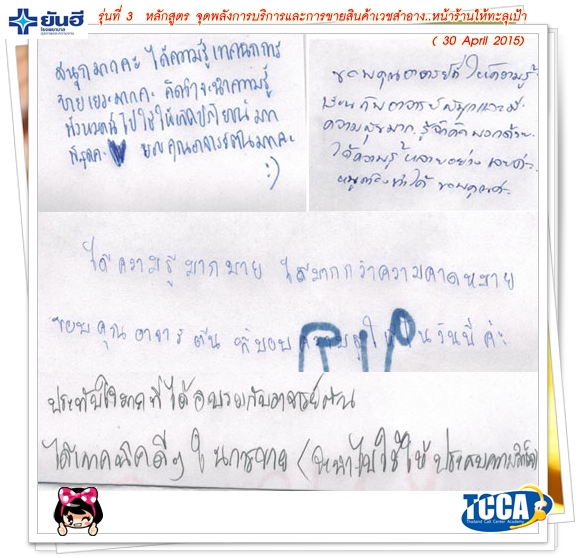 ยันฮี
โรงพยาบาล
รุ่นที่ 3 หลักสูตร จุดพลังการบริการและการขายสินค้าเวชสำอาง..หน้าร้านให้ทะลุเป้า
( 30 April 2015)
สนุกมากคะ ได้ความรู้ เทคนิคการ
ขายเยอะมากคะ คิดว่าจะนำความรู้
ทั้งหมดนี้ไปใช้ให้เกิดประโยชน์มาก
ที่สุดคะ ขอบคุณอาจารย์ตันมากคะ
:)
ขอบคุณอาจารย์ที่ให้ความรู้
เรียนกับอาจารย์สนุกและมี
ความสุขมาก รู้สึก
ได้ความรู้หลายอย่างเลยค่ะ
หนูต้องทำได้ ขอบคุณค่ะ
ได้ความรู้มากมาย ได้มากกว่าความคาดหมาย
ขอบคุณอาจารย์ตัน ที่มอบ ในวันนี้ค่ะ
ประทับใจมากที่ได้อบรมกับอาจารย์ตัน
ได้เทคนิคดีๆ ในการขาย (จะนำไปใช้ให้ประสบความสำเร็จ)
TCCA
Thailand Call Center Academy